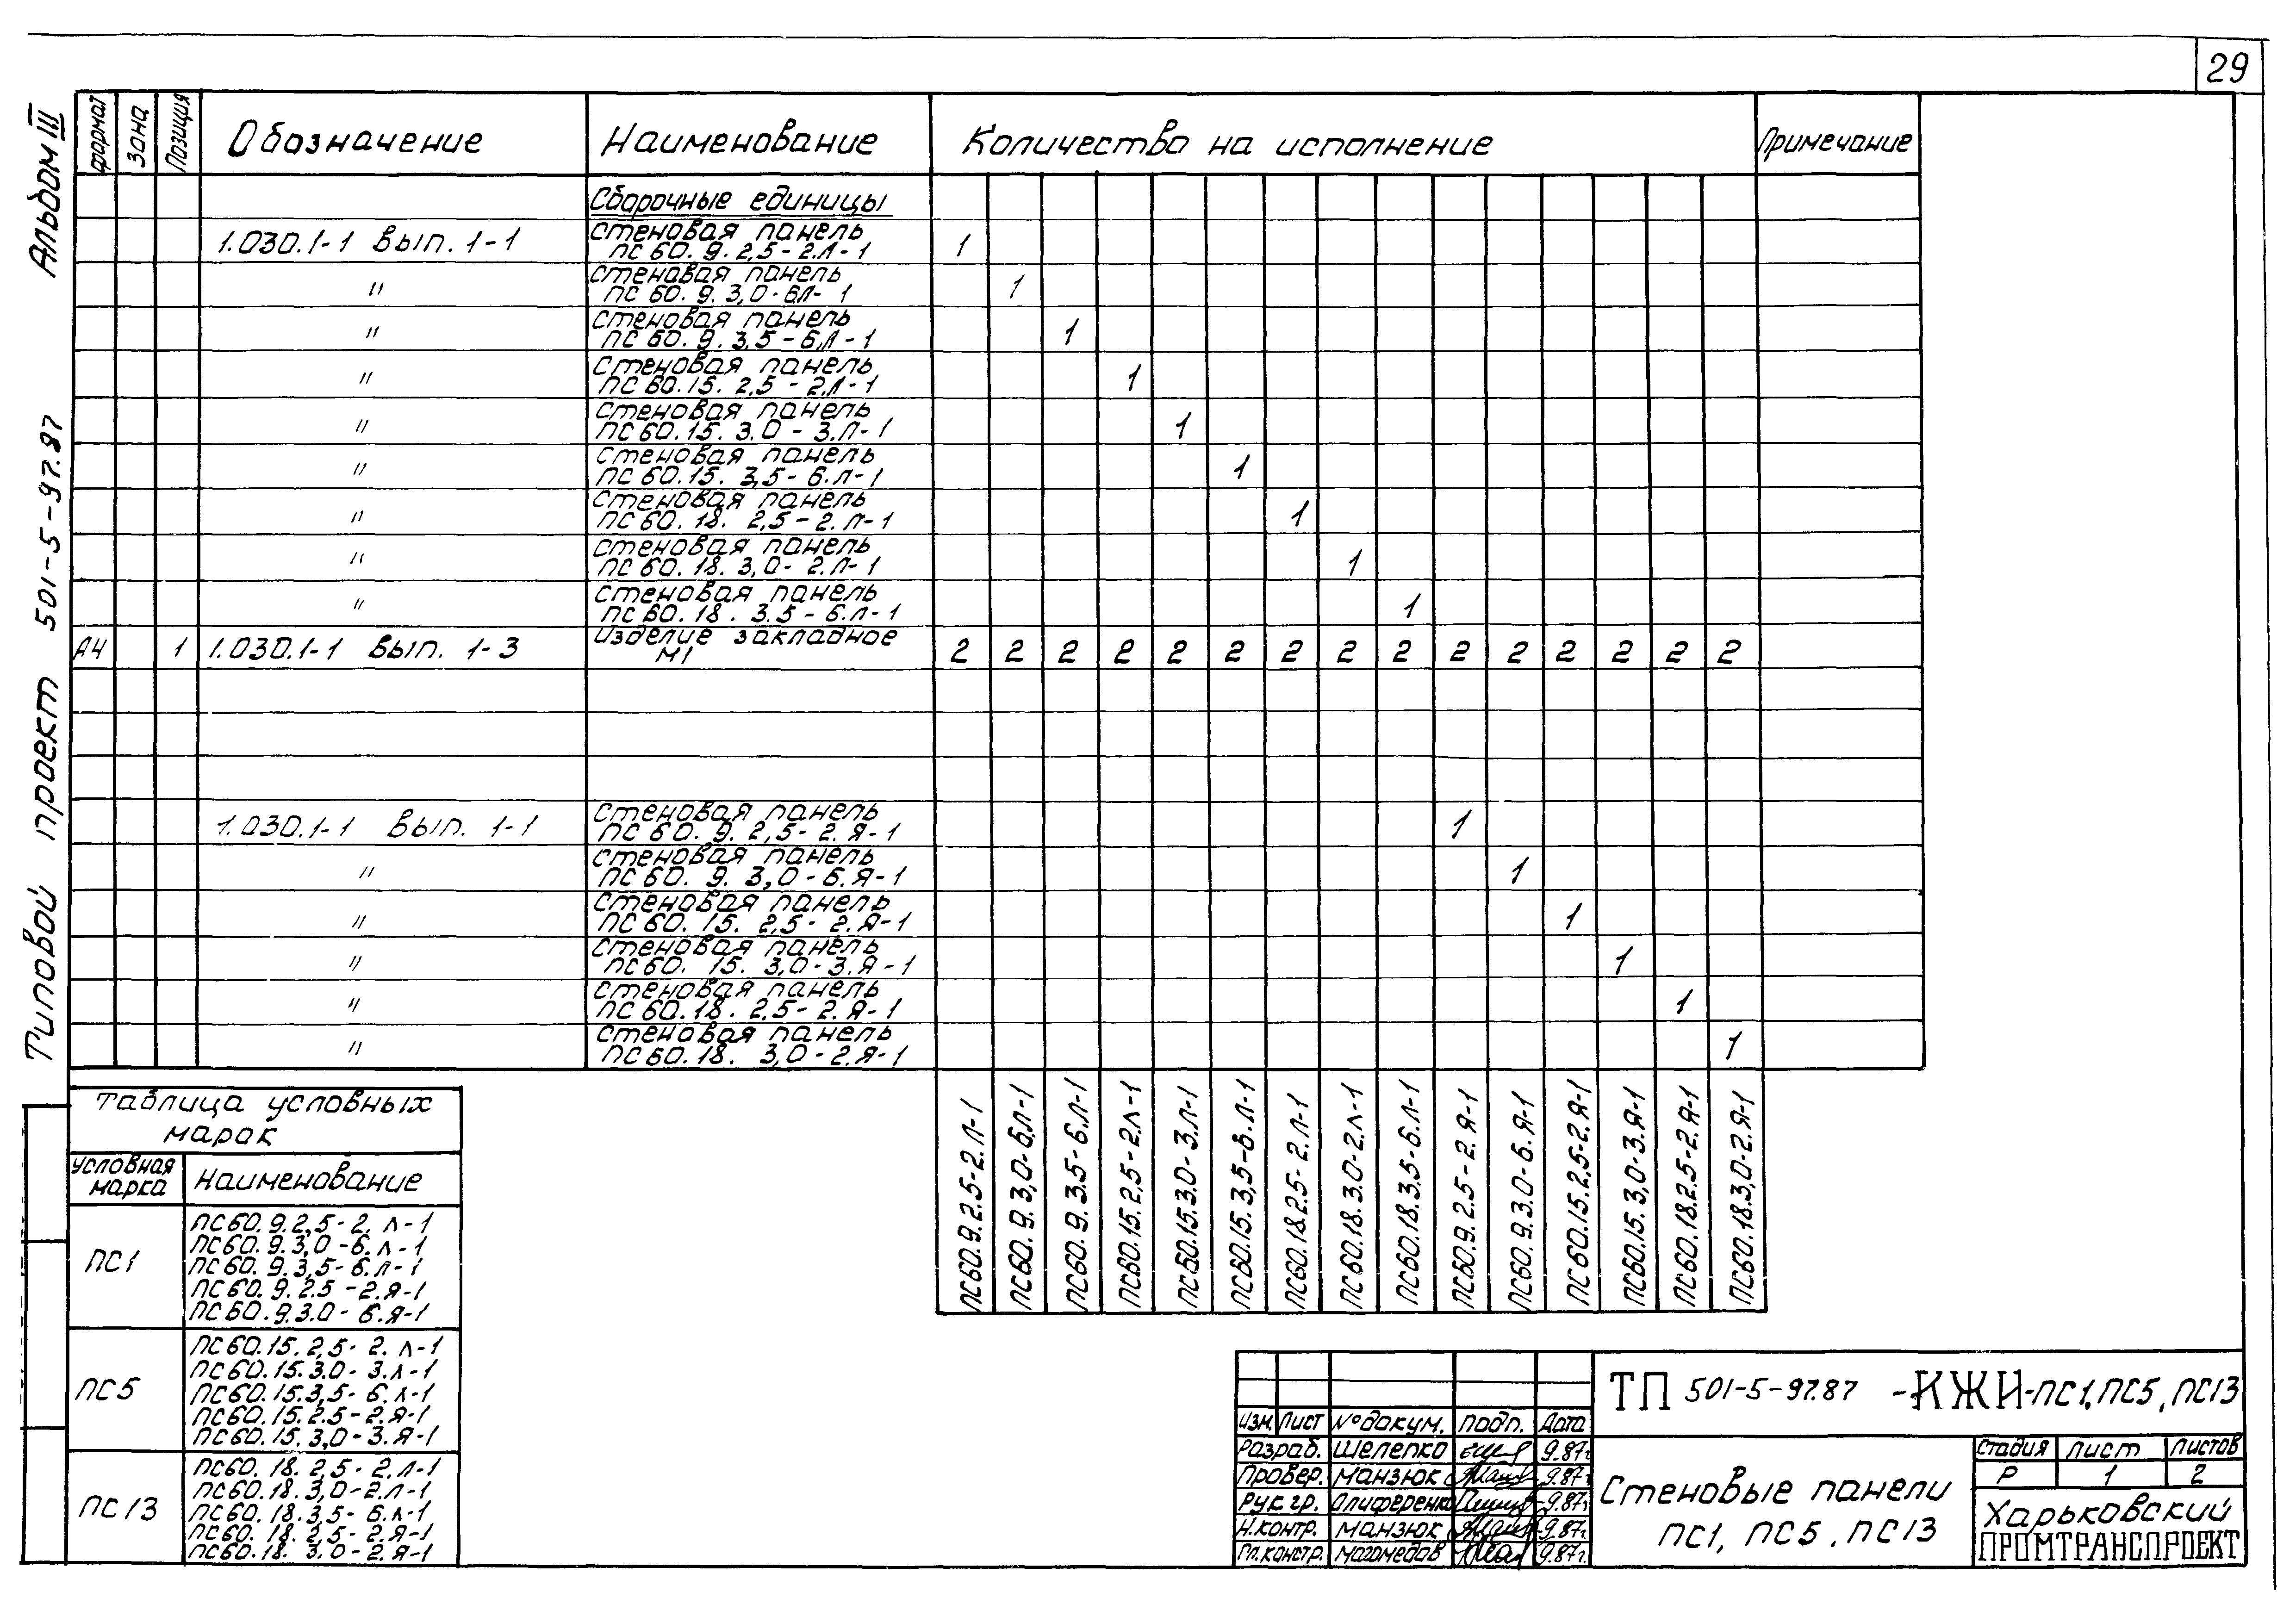 29
Альбом III
Типовой проект 501-5-97.87
Формат
Зона
Позиция
Обозначение
Наименование
Количество на исполнение
Примечание
Сборочные единицы
1.030.1-1 Вып. 1-1
стеновая панель
ПС 60. 9. 2,5-2.Л-1
1
"
стеновая панель
ПС 60. 9. 3,0-6Л-1
1
"
стеновая панель
ПС 60. 9. 3,5-6.Л-1
1
"
стеновая панель
ПС 60.15. 2,5-2.Л-1
1
"
стеновая панель
ПС 60.15. 3.0-3.Л-1
1
"
стеновая панель
ПС 60.15. 3,5-6.Л-1
1
"
стеновая панель
ПС 60. 18. 2,5-2.Л-1
1
"
стеновая панель
ПС 60. 18. 3,0-2.Л-1
1
"
стеновая панель
ПС 60. 18. 3.5-6.Л-1
1
А4 1 1.030.1-1 Вып. 1-3
изделие закладное
М1
2 2 2 2 2 2 2 2 2 2 2 2 2 2 2
1.030.1-1 Вып. 1-1
стеновая панель
ПС 60. 9. 2,5-2. Я-1
1
"
стеновая панель
ПС 60. 9. 3,0-6.Я-1
1
"
стеновая панель
ПС 60. 15. 2,5-2.Я-1
1
"
стеновая панель
ПС 60. 15. 3,0-3.Я-1
1
"
стеновая панель
ПС 60.18. 2,5-2.Я-1
1
"
стеновая панель
ПС 60.18. 3,0-2.Я-1
1
ПС60.9.2.5-2.Л-1
ПС60.9.3,0-6.Л-1
ПС60.9.3.5-6.Л-1
ПС60.15.2,5-2Л-1
ПС60.15.3.0-3.Л-1
ПС60.15.3,5-6.Л-1
ПС60.18.2.5-2.Л-1
ПС60.18.3.0-2.Л-1
ПС60.18.3,5-6.Л-1
ПС60.9.2.5-2.Я-1
ПС60.9.3.0-6.Я-1
ПС60.15.2,5-2.Я-1
ПС60.15.3,0-3.Я-1
ПС60.18.2.5-2.Я-1
ПС60.18.3,0-2.Я-1
таблица условных
марок
условная
марка
Наименование
ПС1
ПС60.9.2,5-2.Л-1
ПС60.9.3,0-6.Л-1
ПС60.9.3,5-6.Л-1
ПС60.9.2.5-2.Я-1
ПС60.9.3.0-6.Я-1
ПС5
ПС60.15.2,5-2.Л-1
ПС60.15.3.0-3.Л-1
ПС60.15.3,5-6.Л-1
ПС60.15.2.5-2.Я-1
ПС60.15.3,0-3.Я-1
ПС13
ПС60.18.2,5-2.Л-1
ПС60.18.3,0-2.Л-1
ПС60.18.3,5-6.Л-1
ПС60.18.2,5-2.Я-1
ПС60.18.3.0-2.Я-1
ТП 501-5-97.87 -КЖИ-ПС1,ПС5,ПС13
Изм. Лист №докум. подп. Дата
Разраб. Шелепко 9.87г
Провер. Манзюк 9.87г
Рук.гр. Олиференко 9.87г
Н.контр. Манзюк 9.87г.
Гл.констр. Магомедов 9.87г.
Стеновые панели
ПС1, ПС5, ПС13
стадия лист листов
Р 1 2
Харьковский
ПРОМТРАНСПРОЕКТ